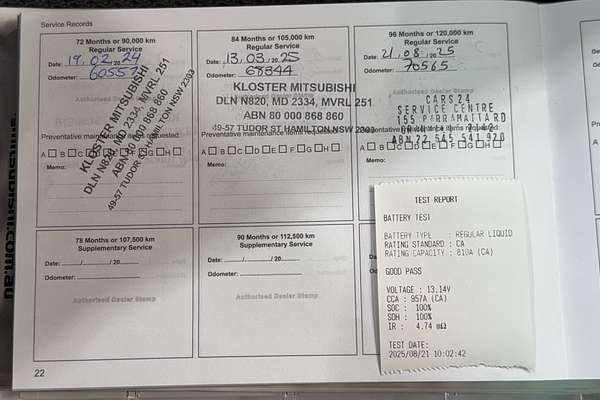 Service Records
72 Months or 90,000 km
Regular Service
Date: 19.02.2024
Odometer: 60557
Authorised Dealer Stamp
KLOSTER MITSUBISHI
DLN N820, MD 2334, MVRL 251
ABN 80 000 868 860
49-57 TUDOR ST HAMILTON NSW 2303
Preventative maintenance items requested:
A B C D E F G H
Memo:
84 Months or 105,000 km
Regular Service
Date: 13.03.2025
Odometer: 68844
KLOSTER MITSUBISHI
DLN N820, MD 2334, MVRL 251
ABN 80 000 868 860
49-57 TUDOR ST HAMILTON NSW 2303
Preventative maintenance items requested:
A B C D E F G H
Memo:
96 Months or 120,000 km
Regular Service
Date: 21.08.2025
Odometer: 70565
Authorised Dealer Stamp
CARS24
SERVICE CENTRE
155 PARRAMATTA RD
GRANVILLE 2142
ABN 22 545 541 920
Preventative maintenance items requested:
A B C D E F G H
Memo:
78 Months or 107,500 km
Supplementary Service
Date: / / 20
Odometer:
Authorised Dealer Stamp
90 Months or 112,500 km
Supplementary Service
Date: / / 20
Odometer:
Authorised Dealer Stamp
TEST REPORT
BATTERY TEST
BATTERY TYPE : REGULAR LIQUID
RATING STANDARD : CA
RATING CAPACITY : 810A (CA)
GOOD PASS
VOLTAGE : 13.14V
CCA : 957A (CA)
SOC : 100%
SOH : 100%
IR : 4.74 mΩ
TEST DATE:
2025/08/21 10:02:42
22